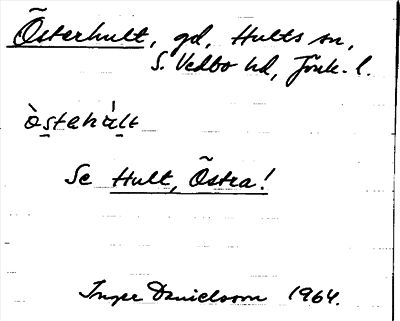 Österhult, gd, Hults sn,
S. Vedbo hd, Jönk. l.
òstehúlt
Se Hult, Östra!
Inger Danielsson 1964.